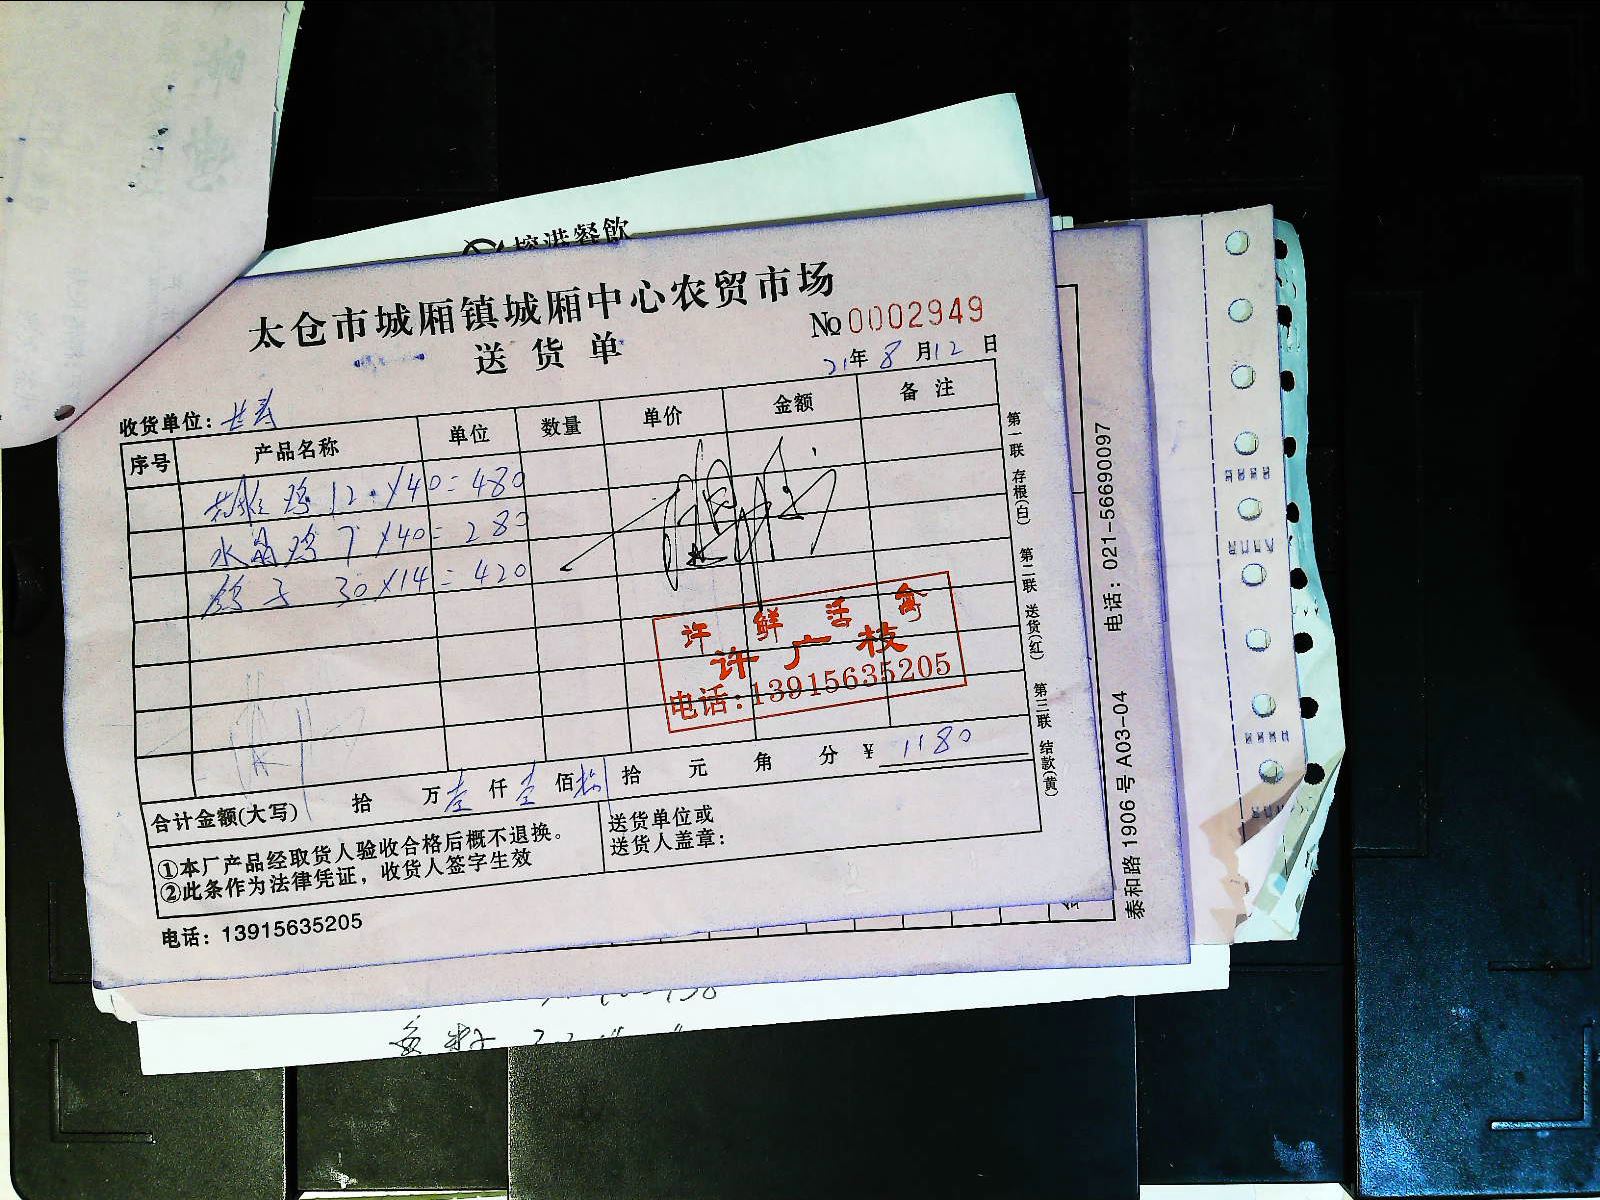 餐飲
太仓市城厢镇城厢中心农贸市场
送货单
No 0002949
21年 8月12日
收货单位：长寿
序号 产品名称 单位 数量 单价 金额 备注
鸡 12 × 40 = 480
水晶鸡 7 × 40 = 280
鸽子 30 × 14 = 420
许 鲜 活 禽
许广枝
电话：13915635205
合计金额(大写) 拾 万 壹 仟 壹 佰 捌 拾 元 角 分 ¥ 1180
①本厂产品经取货人验收合格后概不退换。
②此条作为法律凭证，收货人签字生效
送货单位或
送货人盖章：
电话：13915635205
第一联 存根(白)
第二联 送货(红)
第三联 结款(黄)
泰和路 1906 号 A03-04 电话：021-56690097